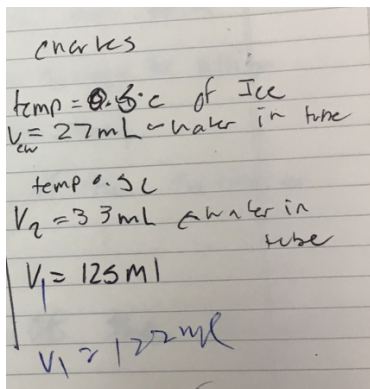 charles
temp = 0.5°C of Ice
Vcw = 27mL water in tube
temp 0.5C
V2 = 33mL water in
tube
V1 = 125ml
V1 = 122ml